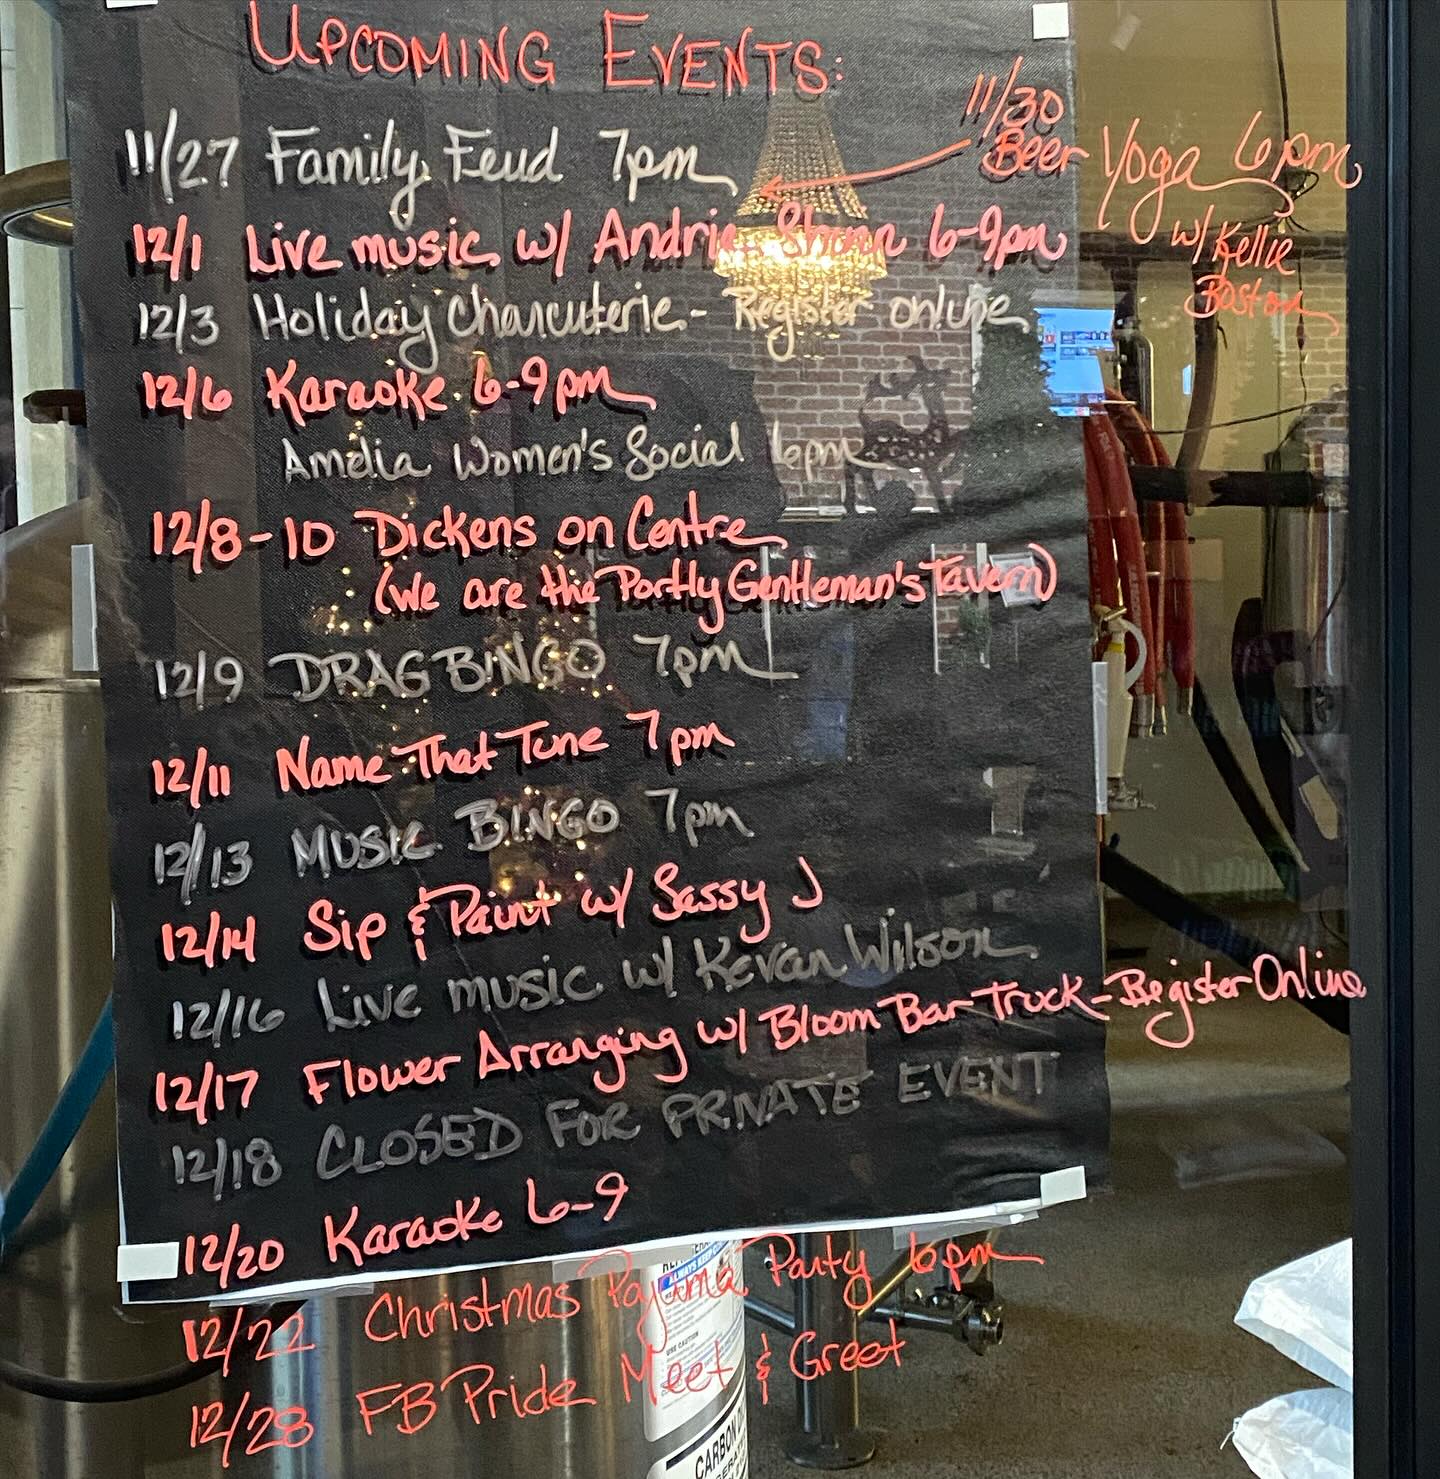 UPCOMING EVENTS:
11/27 Family Feud 7pm
11/30
Beer Yoga 6pm
w/ Kellie
Boston
12/1 Live music w/ Andrie Shinn 6-9pm
12/3 Holiday Charcuterie - Register online
12/6 Karaoke 6-9pm
Amelia Women's Social 6pm
12/8-10 Dickens on Centre
(we are the Portly Gentleman's Tavern)
12/9 DRAG BINGO 7pm
12/11 Name That Tune 7pm
12/13 MUSIC BINGO 7pm
12/14 Sip & Paint w/ Sassy J
12/16 Live music w/ Kevan Wilson
12/17 Flower Arranging w/ Bloom Bar Truck - Register Online
12/18 CLOSED FOR PRIVATE EVENT
12/20 Karaoke 6-9
12/22 Christmas Pajama Party 6pm
12/28 FB Pride Meet & Greet
USE CAUTION
CARBON